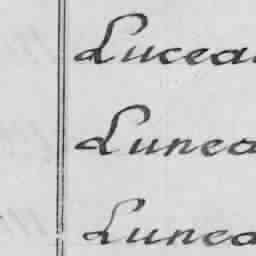 Lucea
Lunea
Lunea